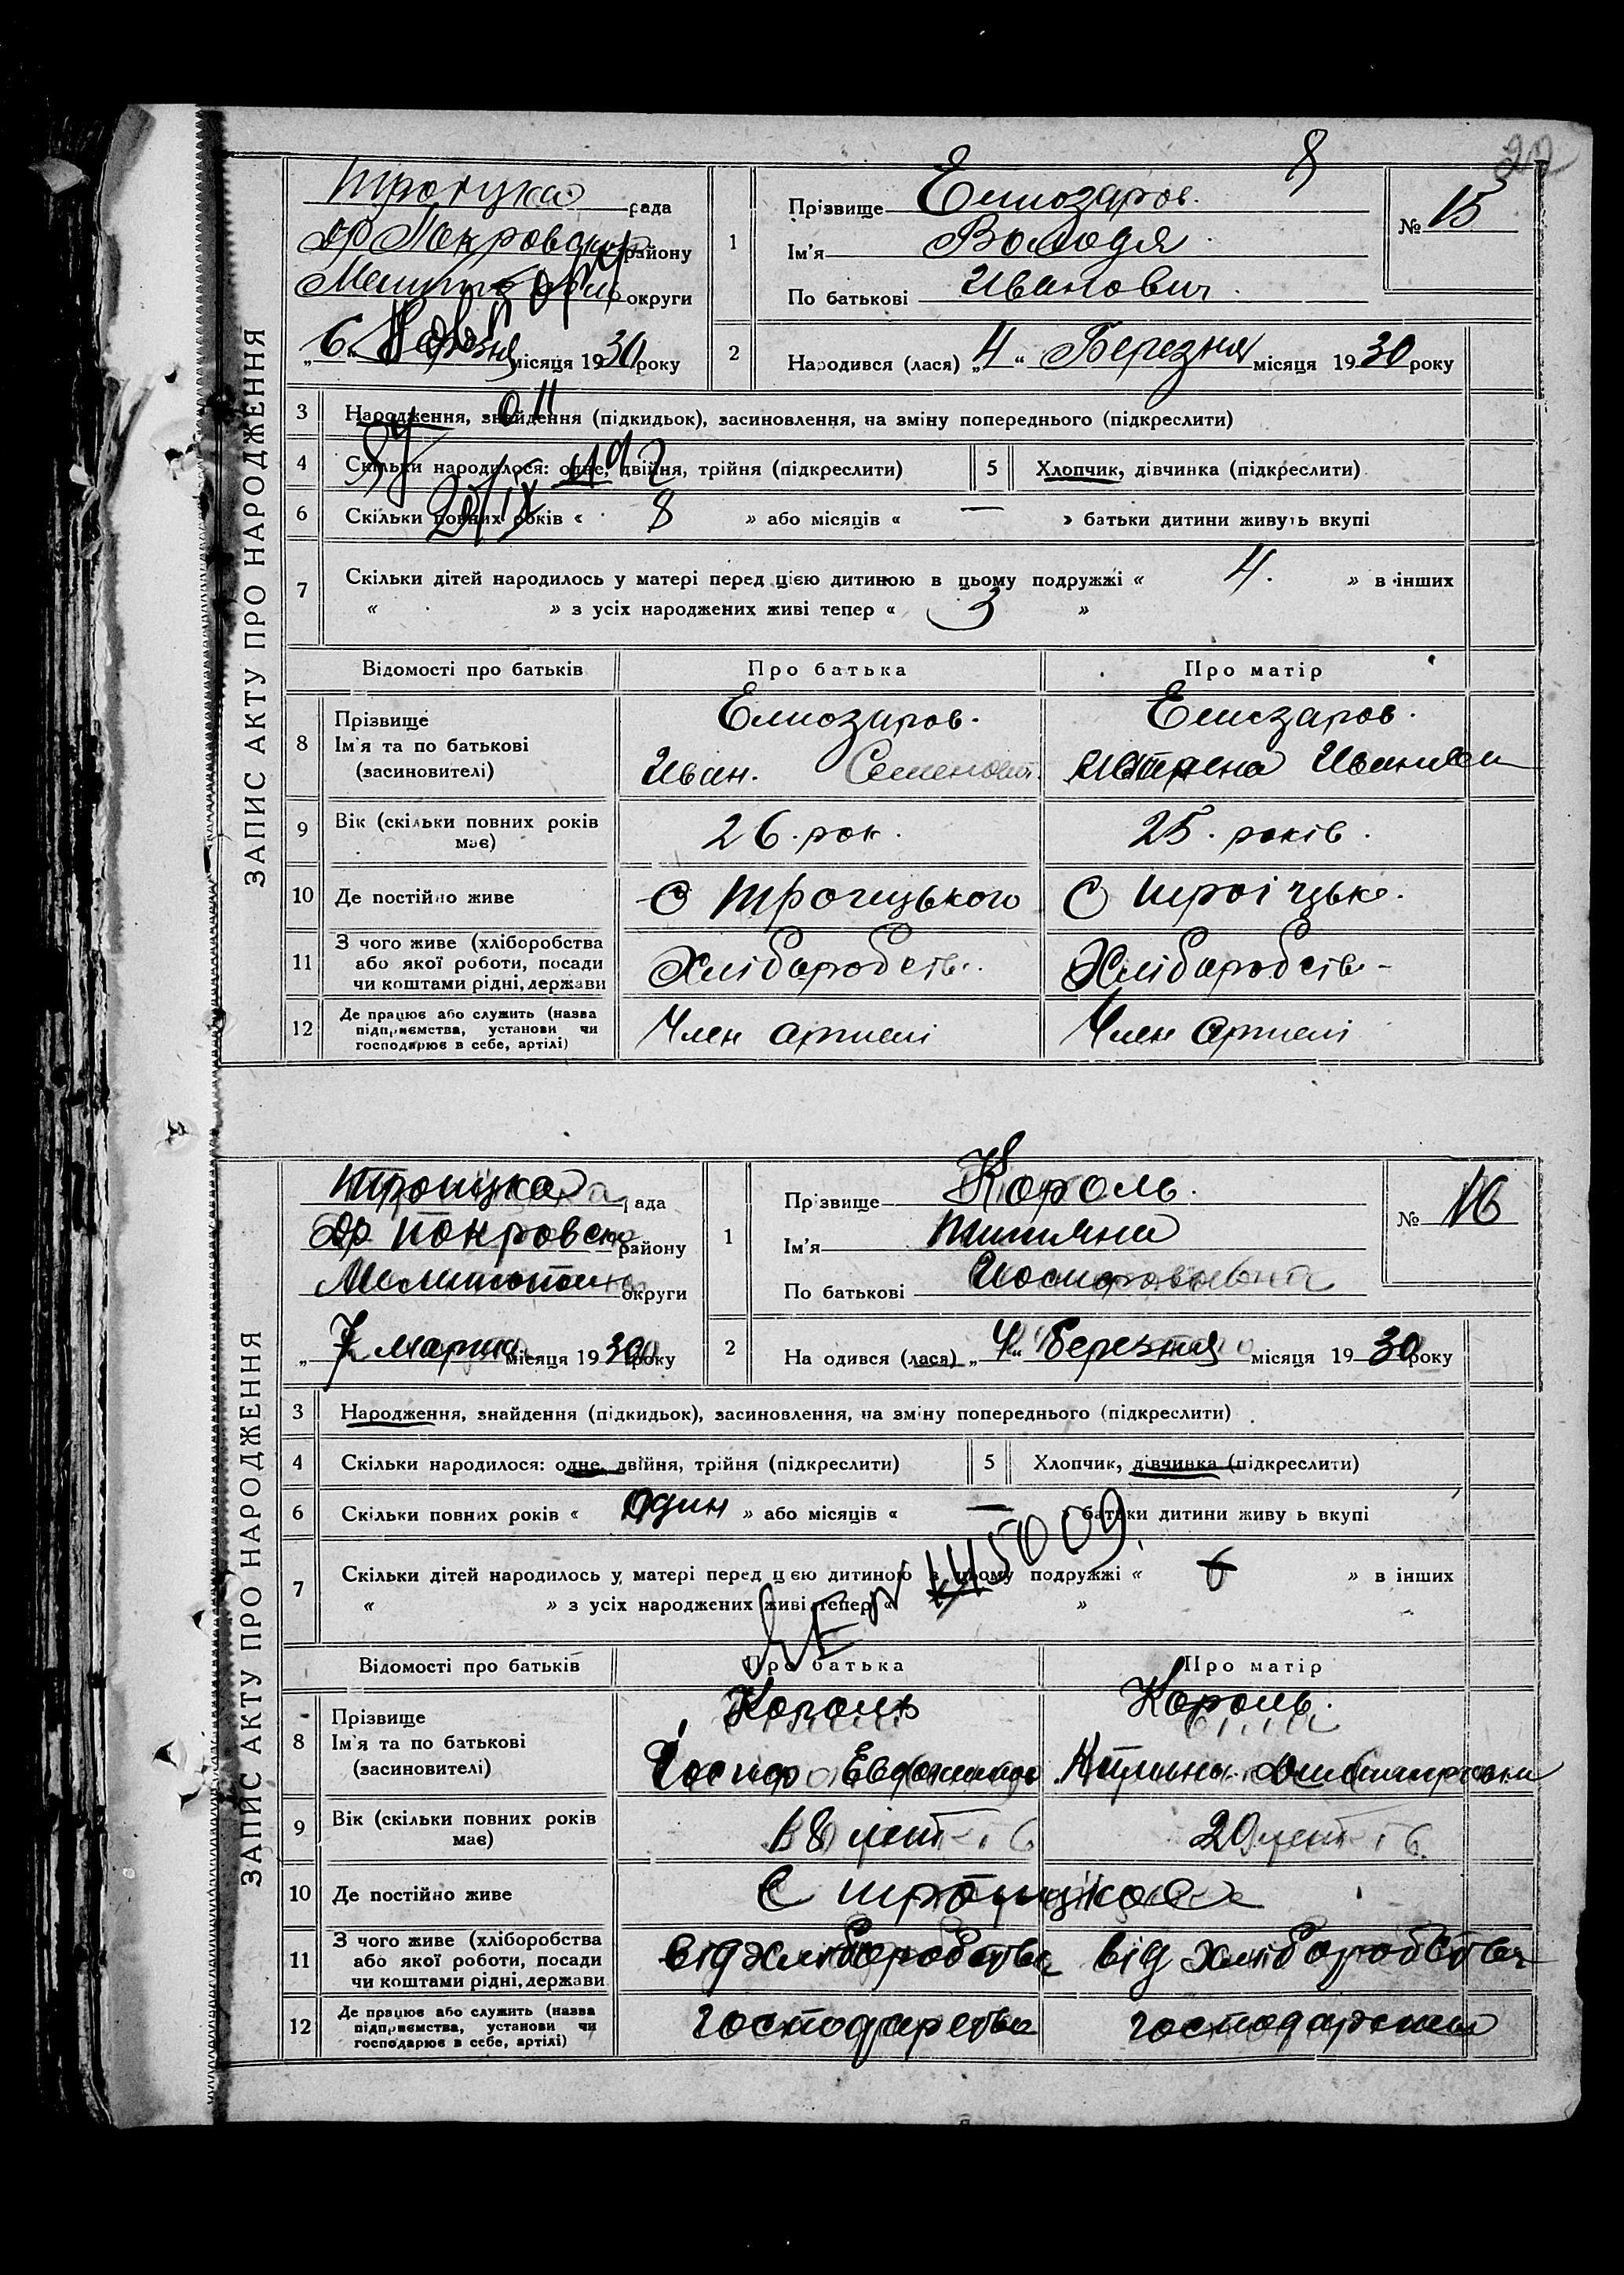 22
8
ЗАПИС АКТУ ПРО НАРОДЖЕННЯ
рада
району
округи
„6“ Березня місяця 1930 року
1
Прізвище Елиозаров.
Ім'я Володя
По батькові Иванович
№ 15
2
Народився (лася) „4“ Березня місяця 1930 року
3
Народження, знайдення (підкидьок), засиновлення, на зміну попереднього (підкреслити)
4
Скільки народилося: одне, двійня, трійня (підкреслити)
5
Хлопчик, дівчинка (підкреслити)
6
Скільки повних років « 8 » або місяців « — » батьки дитини живуть вкупі
7
Скільки дітей народилось у матері перед цією дитиною в цьому подружжі « 4. » в інших
« » з усіх народжених живі тепер « 3 »
Відомості про батьків
Про батька
Про матір
8
Прізвище
Ім'я та по батькові
(засновителі)
Елиозаров.
Иван. Семенович
Елиозаров.
9
Вік (скільки повних років
має)
26. рок.
25. років.
10
Де постійно живе
С
С Троіцьке.
11
З чого живе (хліборобства
або якої роботи, посади
чи коштами рідні, держави
Хлібаробств.
Хлібаробств-
12
Де працює або служить (назва
підприємства, установи чи
господарює в себе, артілі)
Член артилі
Член артилі
ЗАПИС АКТУ ПРО НАРОДЖЕННЯ
Троицка рада
Др Покровск району
округи
„7 марта місяця 1930 року
1
Прізвище Король.
Ім'я Титяна
По батькові
№ 16
2
Народився (лася) „4“ березня місяця 1930 року
3
Народження, знайдення (підкидьок), засиновлення, на зміну попереднього (підкреслити)
4
Скільки народилося: одне, двійня, трійня (підкреслити)
5
Хлопчик, дівчинка (підкреслити)
6
Скільки повних років « один » або місяців « — » батьки дитини живуть вкупі
7
Скільки дітей народилось у матері перед цією дитиною в цьому подружжі « » в інших
« » з усіх народжених живі тепер « »
Відомості про батьків
Про батька
Про матір
8
Прізвище
Ім'я та по батькові
(засновителі)
Король
Король.
9
Вік (скільки повних років
має)
18 лет
20 лет
10
Де постійно живе
С
11
З чого живе (хліборобства
або якої роботи, посади
чи коштами рідні, держави
від хліборобства
від хліборобства
12
Де працює або служить (назва
підприємства, установи чи
господарює в себе, артілі)
господарства